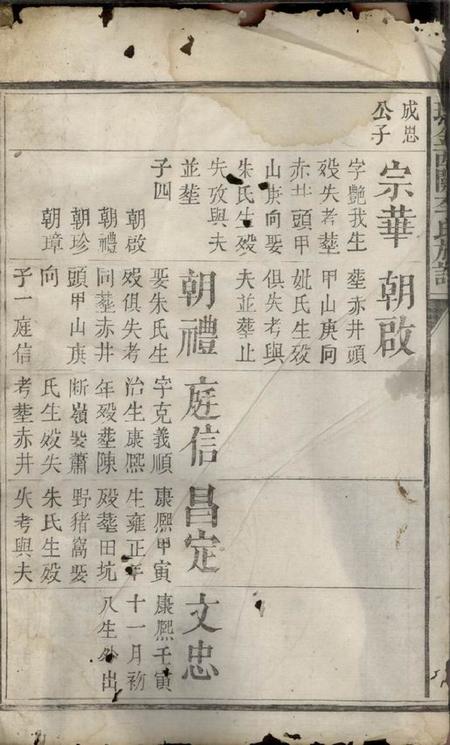 金西關李氏族譜
成恩
公子
宗華
字艷我生
歿失考塟
赤井頭甲
山庚向娶
朱氏生歿
失攷與夫
並塟
子四
朝啟
朝禮
朝珍
朝璋
朝啟
塟赤井頭
甲山庚向
妣氏生歿
俱失考與
夫並塟止
朝禮
娶朱氏生
歿俱失考
同塟赤井
頭甲山庚
向
子一庭信
庭信
字克義順
治生康熙
年歿塟陳
断嶺娶蕭
氏生歿失
考塟赤井
昌定
康熙甲寅
生雍正年
歿塟田坑
野猪窩娶
朱氏生歿
失考與夫
文忠
康熙壬寅
十一月初
八生外出